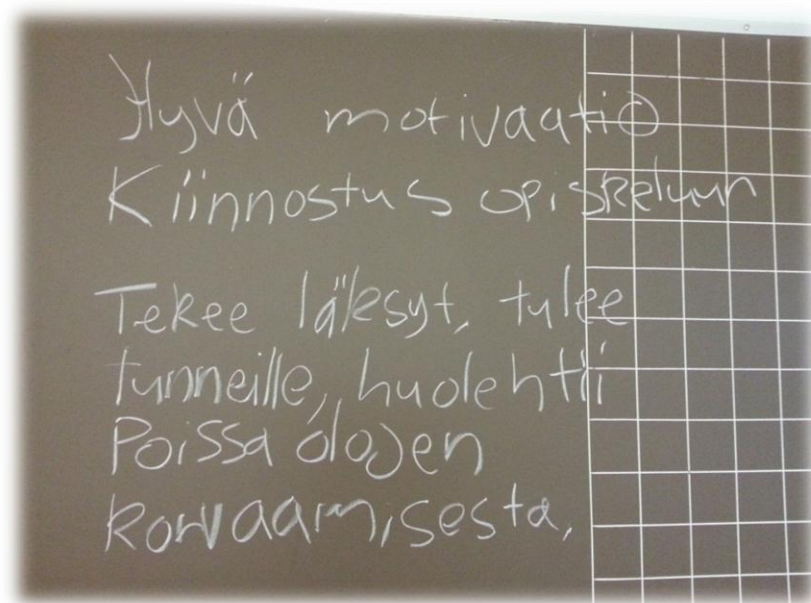 Hyvä motivaatio
Kiinnostus opiskeluun
Tekee läksyt, tulee
tunneille, huolehtii
Poissa olojen
korvaamisesta.